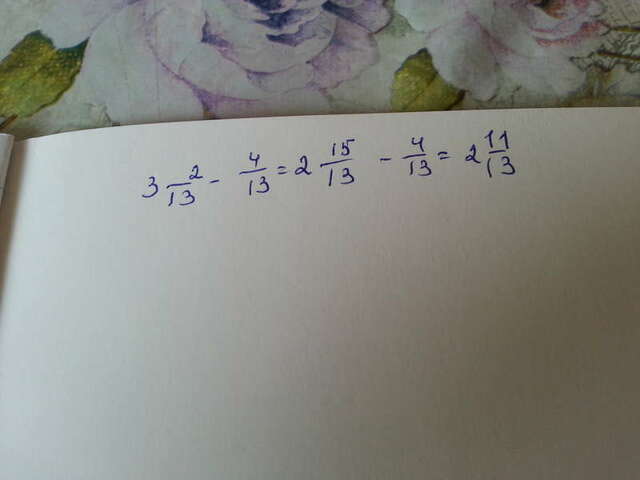 3 2/13 - 4/13 = 2 15/13 - 4/13 = 2 11/13